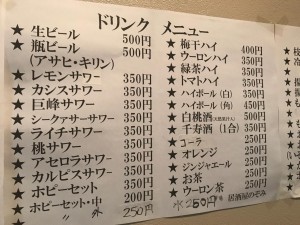 ドリンク メニュー
★ 生ビール 500円
★ 瓶ビール 500円
(アサヒ・キリン)
★ レモンサワー 350円
★ カシスサワー 350円
★ 巨峰サワー 350円
★ シークァーサーサワー 350円
★ ライチサワー 350円
★ 桃サワー 350円
★ アセロラサワー 350円
★ カルピスサワー 350円
★ ホピーセット 350円
★ ホピーセット・中 200円
〃 外 250円
★ 梅干ハイ 400円
★ ウーロンハイ 350円
★ 緑茶ハイ 350円
★ トマトハイ 350円
★ ハイボール(白) 350円
★ ハイボール(角) 450円
★ 白桃酒 500円
★ 千寿酒(1合) 350円
★ コーラ 250円
★ オレンジ 250円
★ ジンジャエール 250円
★ お茶 250円
★ ウーロン茶 250円
水 250円
居酒屋のぞみ
★ 枝
★ 冷